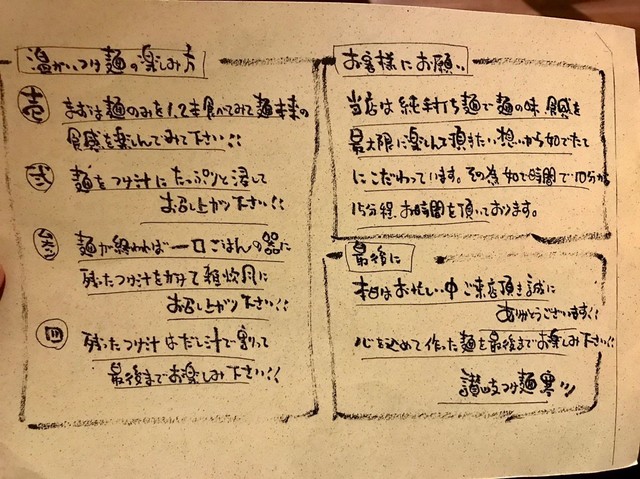 温かいつけ麺の楽しみ方
壱 まずは麺のみを1,2本食べてみて麺本来の
食感を楽しんでみて下さい!!
弐 麺をつけ汁にたっぷりと浸して
お召し上がり下さい!!
参 麺が終われば一口ごはんの器に
残ったつけ汁をかけて雑炊風に
お召し上がり下さい!!
四 残ったつけ汁はだし汁で割って
最後までお楽しみ下さい!!
お客様にお願い
当店は純手打ち麺で麺の味、食感を
最大限に楽しんで頂きたい想いから茹でたて
にこだわっています。その為茹で時間で10分から
15分程、お時間を頂いております。
最後に
本日はお忙しい中ご来店頂き誠に
ありがとうございます!!
心を込めて作った麺を最後までお楽しみ下さい!!
讃岐つけ麺寒川